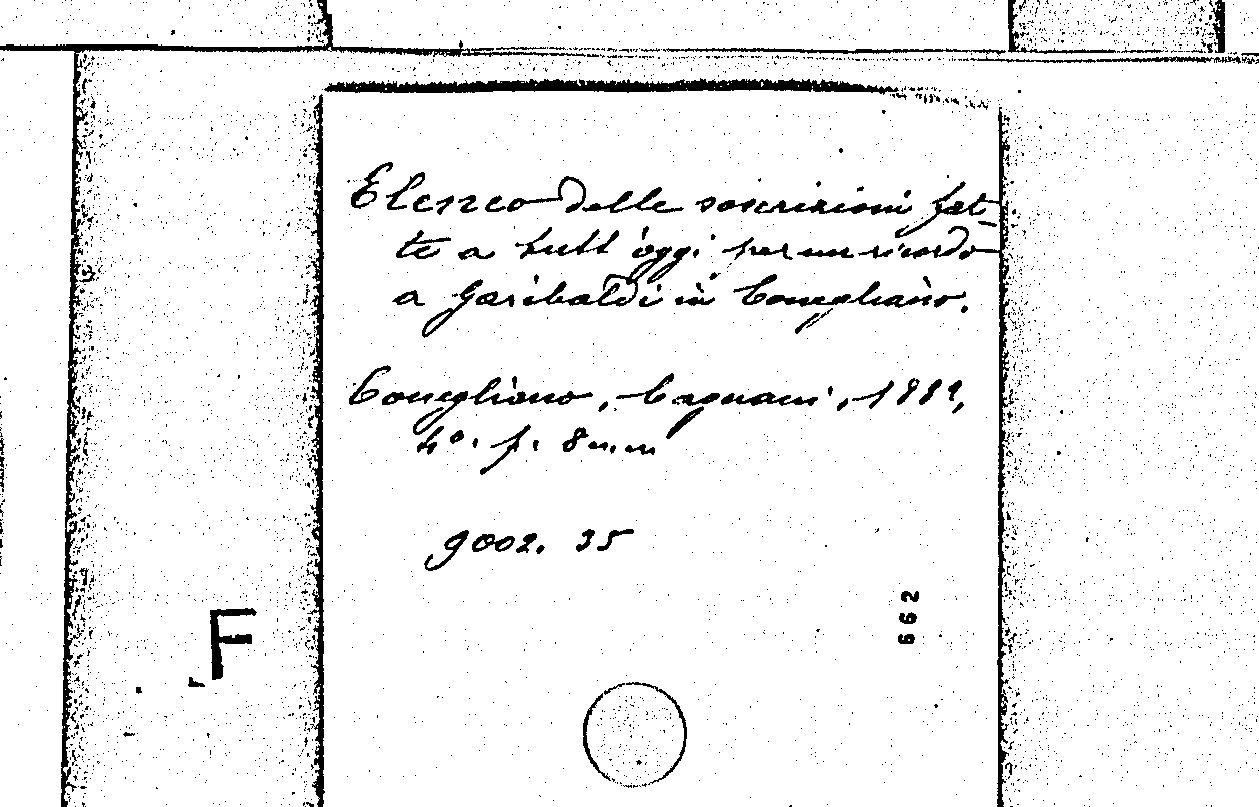 Elenco delle soscrizioni fat-
te a tutt'oggi per un ricordo
a Garibaldi in Conegliano.
Conegliano, Cagnani, 1882,
4°. p. 8 n.n
9002. 35
662
F